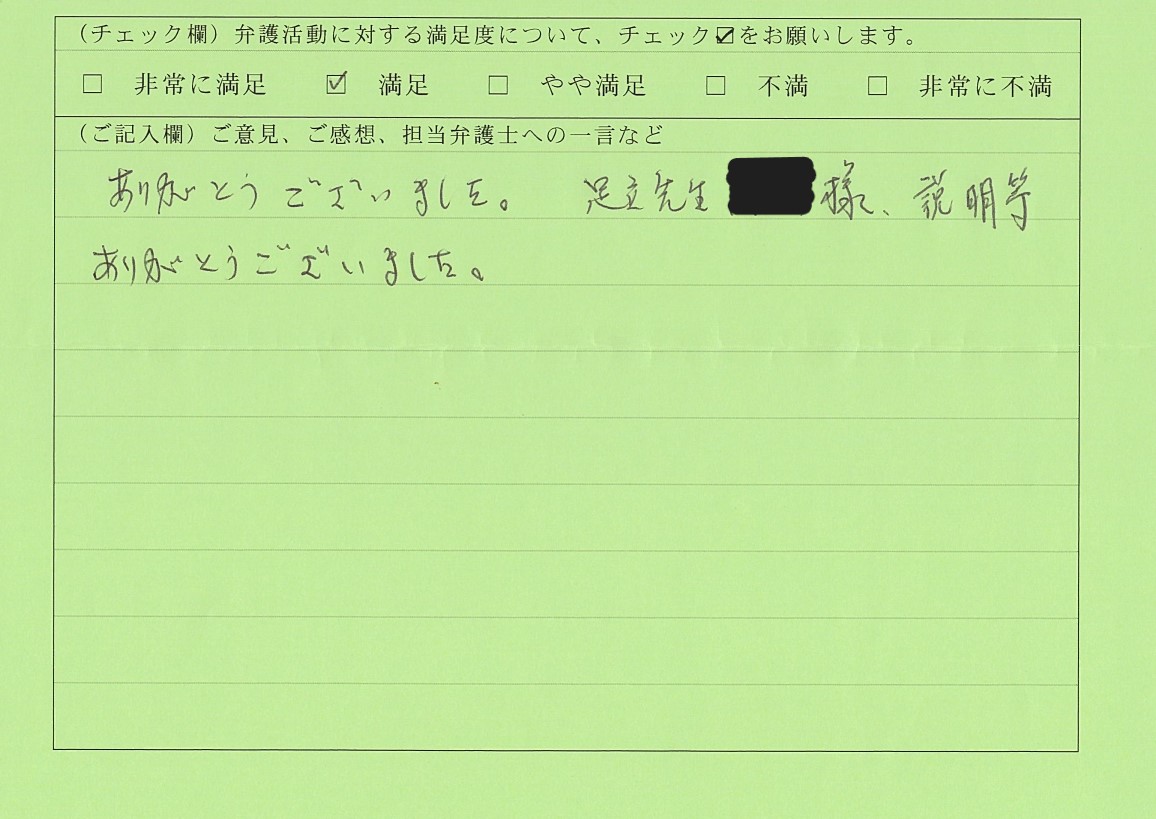 （チェック欄）弁護活動に対する満足度について、チェック☑をお願いします。
□ 非常に満足 ☑ 満足 □ やや満足 □ 不満 □ 非常に不満
（ご記入欄）ご意見、ご感想、担当弁護士への一言など
ありがとうございました。 足立先生 様、説明等
ありがとうございました。